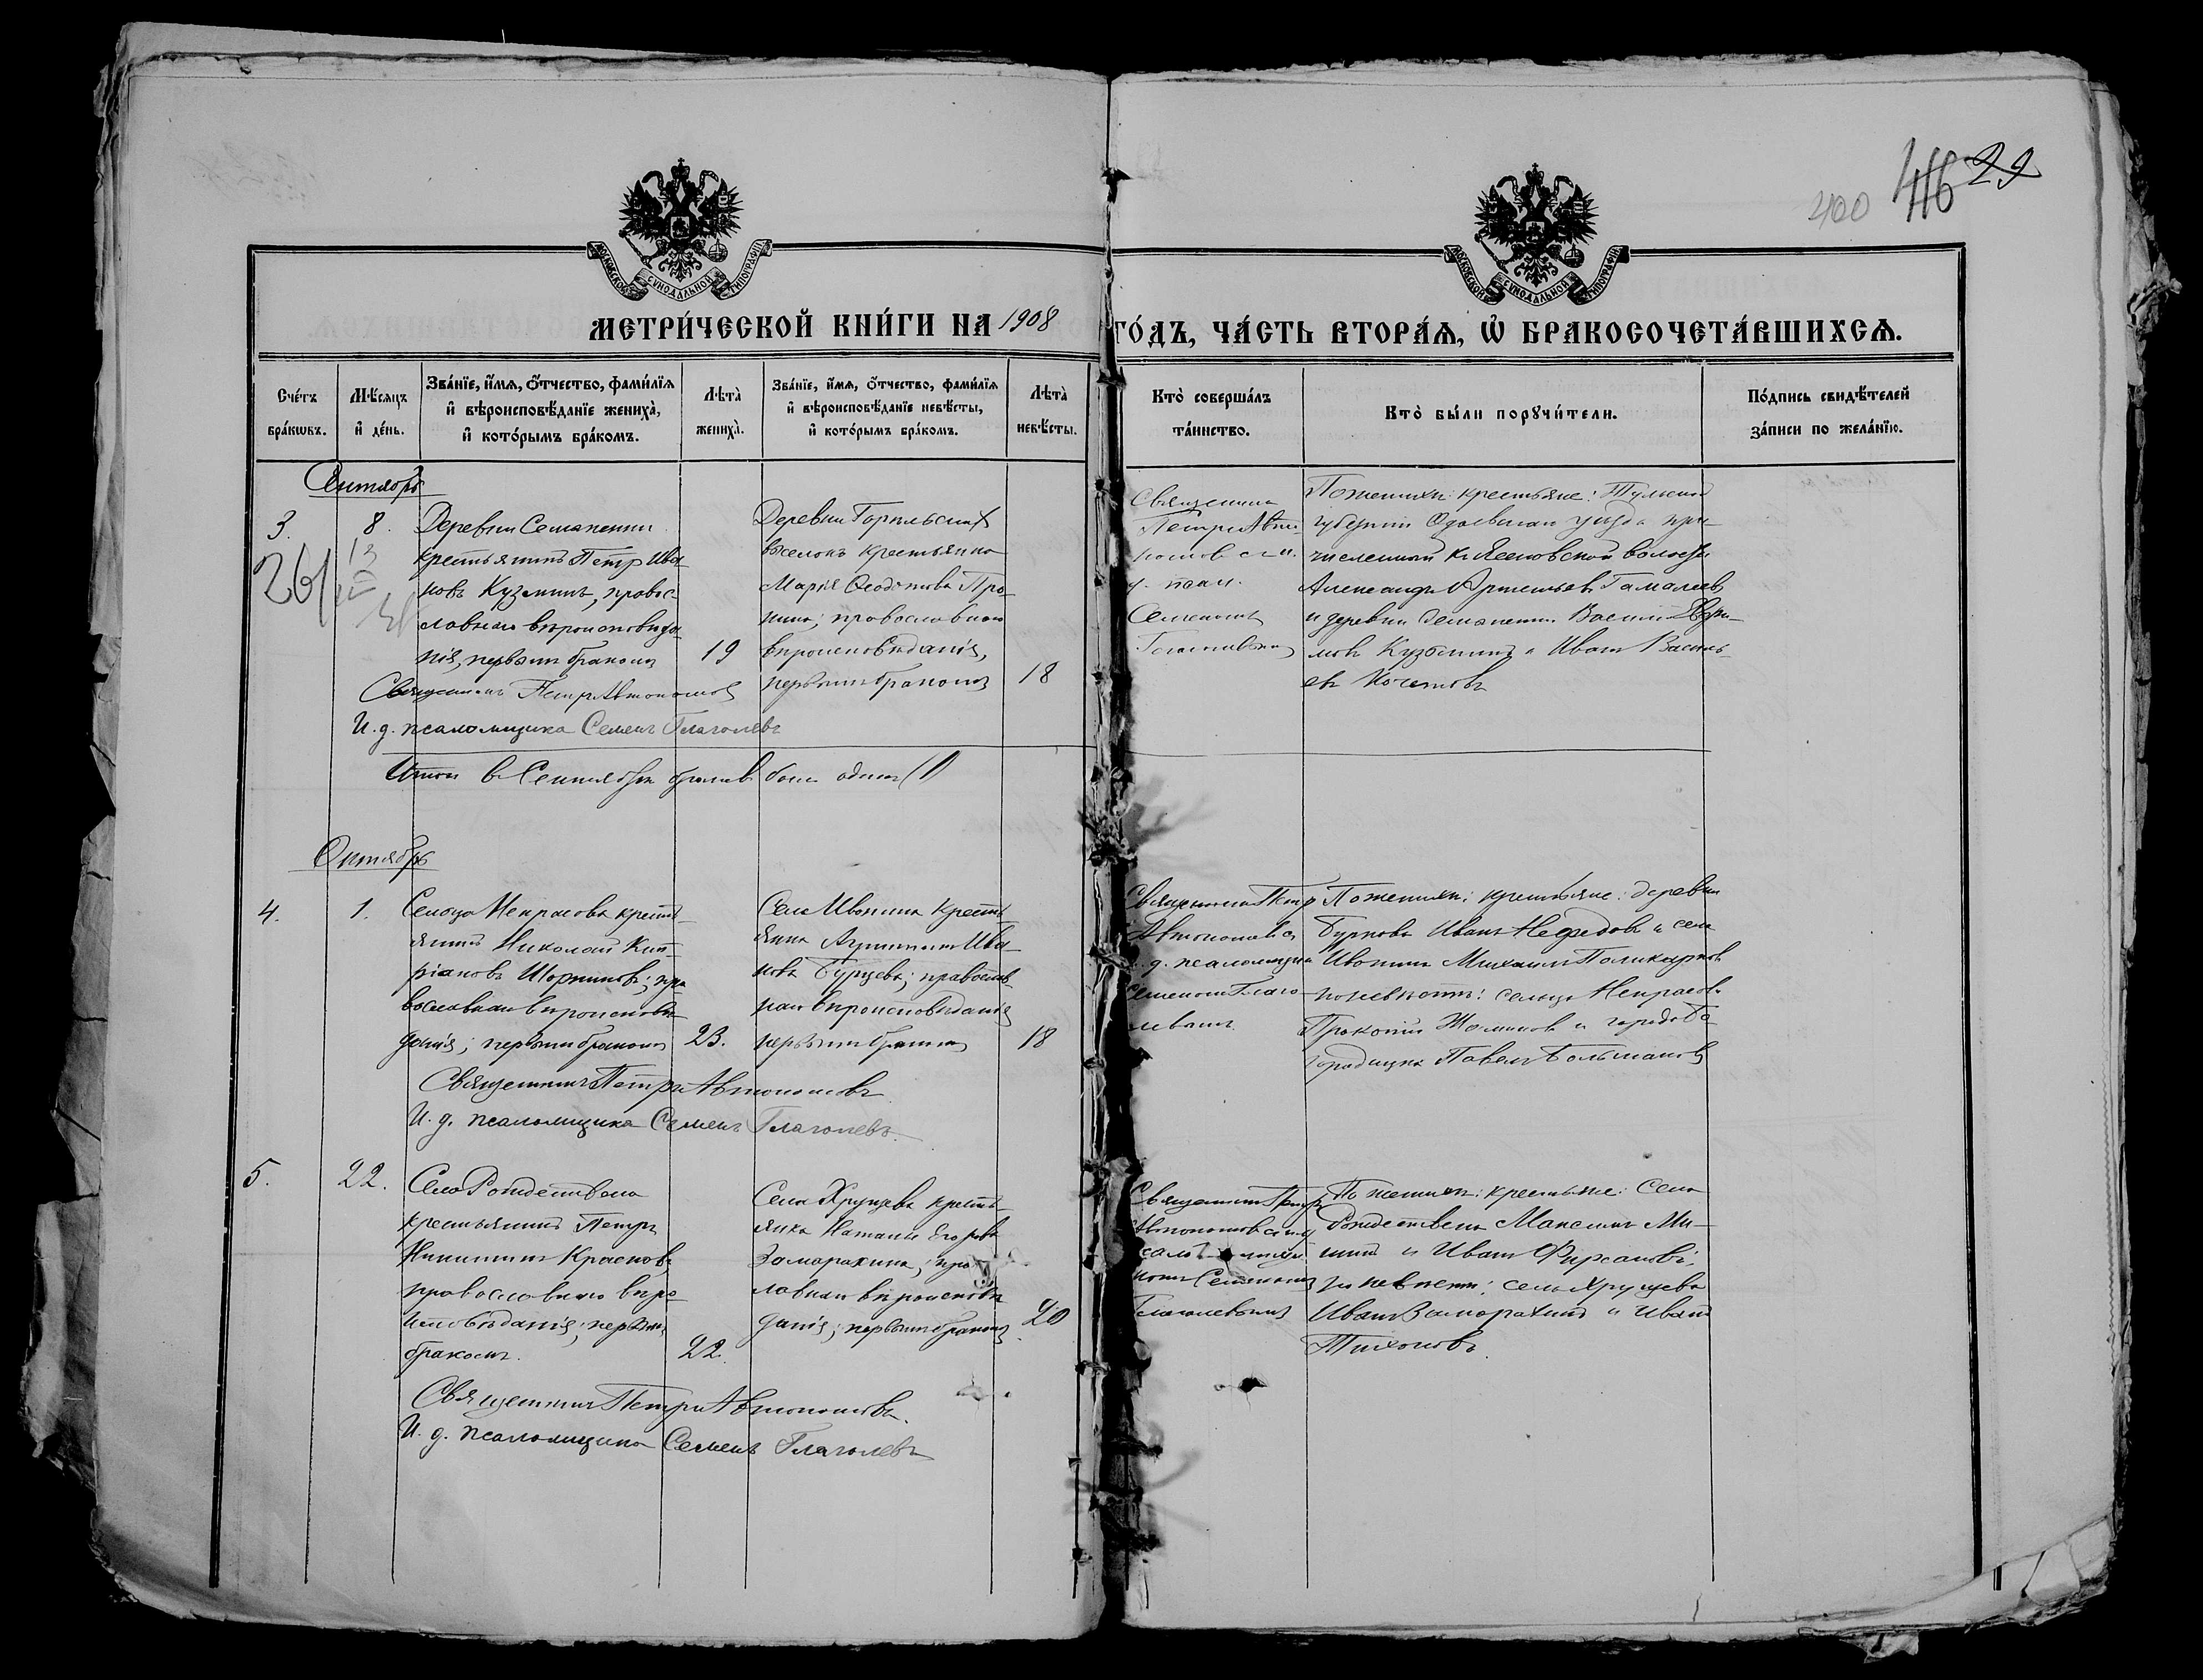 400 416 29
МОСКОВСКОЙ СѴНОДАЛЬНОЙ ТИПОГРАФІИ
МОСКОВСКОЙ СѴНОДАЛЬНОЙ ТИПОГРАФІИ
МЕТРИ́ЧЕСКОЙ КНИ́ГИ НА 1908 ГО́ДЪ, ЧА́СТЬ ВТОРА́Ѧ, Ѡ҆ БРАКОСОЧЕТА́ВШИХСѦ.
Сче́тъ бра́кѡвъ.
Мѣ́сяцъ и҆ де́нь.
Зва́нїе, и҆́мѧ, ѻ҆́тчество, фами́лїѧ
и҆ вѣроисповѣ́данїе жениха̀,
и҆ кото́рымъ бра́комъ.
Лѣта̀ жениха̀.
Зва́нїе, и҆́мѧ, ѻ҆́тчество, фами́лїѧ
и҆ вѣроисповѣ́данїе невѣ́сты,
и҆ кото́рымъ бра́комъ.
Лѣта̀ невѣ́сты.
Кто̀ соверша́лъ та́инство.
Кто̀ бы́ли порꙋчи́тели.
По́дпись свидѣ́телей за́писи по жела́нїю.
Сентябрь
3.
8.
Деревни
крестьянинъ Петр Ива-
новъ Кузминъ, правос-
лавнаго вѣроисповѣда-
нія, первымъ бракомъ
19
Деревни
выселокъ крестьянка
Марія Про-
нина; православнаго
вѣроисповѣданія,
первымъ бракомъ
18
Священникъ
Петръ Авто-
номовъ с и.
д. псал.
Семеномъ
Глаголевымъ
По женихѣ: крестьяне: Тульской
губерніи Одоевскаго уѣзда при-
численный къ волости
Александръ
и деревни Василій
Кузьминъ и Иванъ Василь-
евъ Кочетовъ
Священникъ Петръ Автономовъ
И. д. псаломщика Семенъ Глаголевъ
Итого въ Сентябрѣ браковъ былъ одинъ (1)
Октябрь
4.
1.
Сельца Некрасова кресть-
янинъ Николай Кип-
ріановъ пра-
вославнаго вѣроисповѣ-
данія; первымъ бракомъ
23.
Села Ивонина кресть-
янка Ива-
нова Бурцева; православ-
наго вѣроисповѣданія
первымъ бракомъ
18
Священникъ Петр
Автономовъ с
и. д. псаломщика
Семеномъ Глаго-
левымъ
По женихѣ: крестьяне: деревни
Бурнова Иванъ Нефедовъ и села
Ивонина Михаилъ Поликарповъ
по невѣстѣ: сельца Некрасова
Прокопій и города Бо-
городицка Павелъ
Священникъ Петръ Автономовъ
И. д. псаломщика Семенъ Глаголевъ.
5.
22.
Села Рождествена
крестьянинъ Петръ
Никитинъ Красновъ
православнаго вѣро-
исповѣданія; первымъ
бракомъ.
22.
Села Хрущева кресть-
янка Наталья Егорова
Замарахина; правос-
лавнаго вѣроисповѣ-
данія; первымъ бракомъ
20
Священникъ Петръ
Автономовъ с и. д.
псаломщи-
комъ Семеномъ
Глаголевымъ
По женихѣ: крестьяне: села
Рождествена Максимъ Ми-
нинъ и Иванъ Фирсановъ;
по невѣстѣ: села Хрущева
Иванъ Замарахинъ и Иванъ
Тихоновъ.
Священникъ Петръ Автономовъ.
И. д. псаломщика Семенъ Глаголевъ